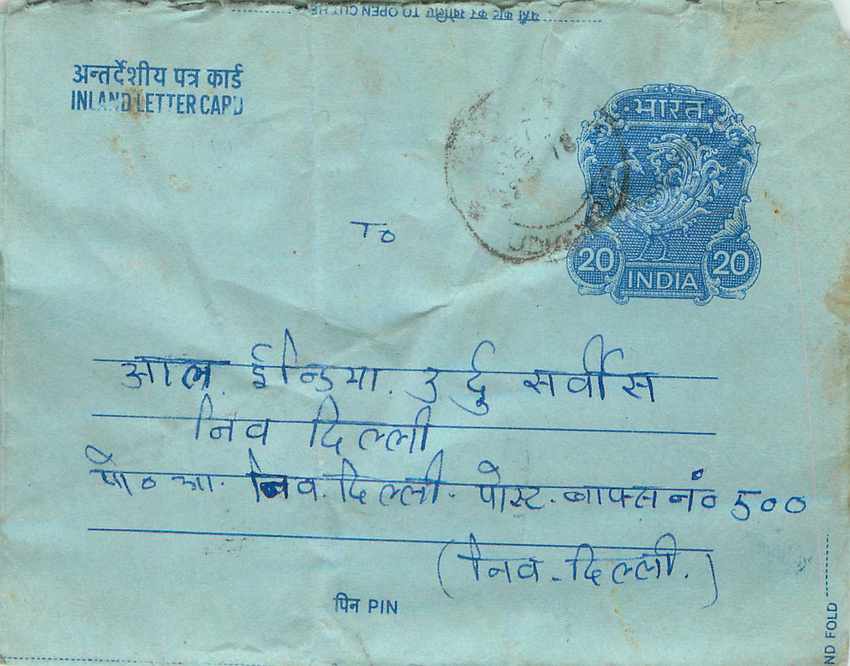 यहाँ काट कर खोलिए TO OPEN CUT HERE
अन्तर्देशीय पत्र कार्ड
INLAND LETTER CARD
भारत
20 INDIA 20
TO
आल. ईन्डिया. उर्दु सर्वीस
निव दिल्ली
पो० आ. निव. दिल्ली. पोस्ट. बाक्स नं० 500
(निव - दिल्ली.)
पिन PIN
ND FOLD